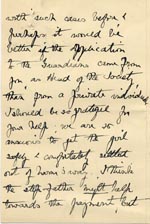 with such cases before &
perhaps it would be
better if the application
to the Guardians came from
you as Head of the Society,
than from a private individual
I should be so grateful for
your help we are so
anxious to get the girl
safely & completely
out of harm's way. I think
the step father might help
towards the payment but